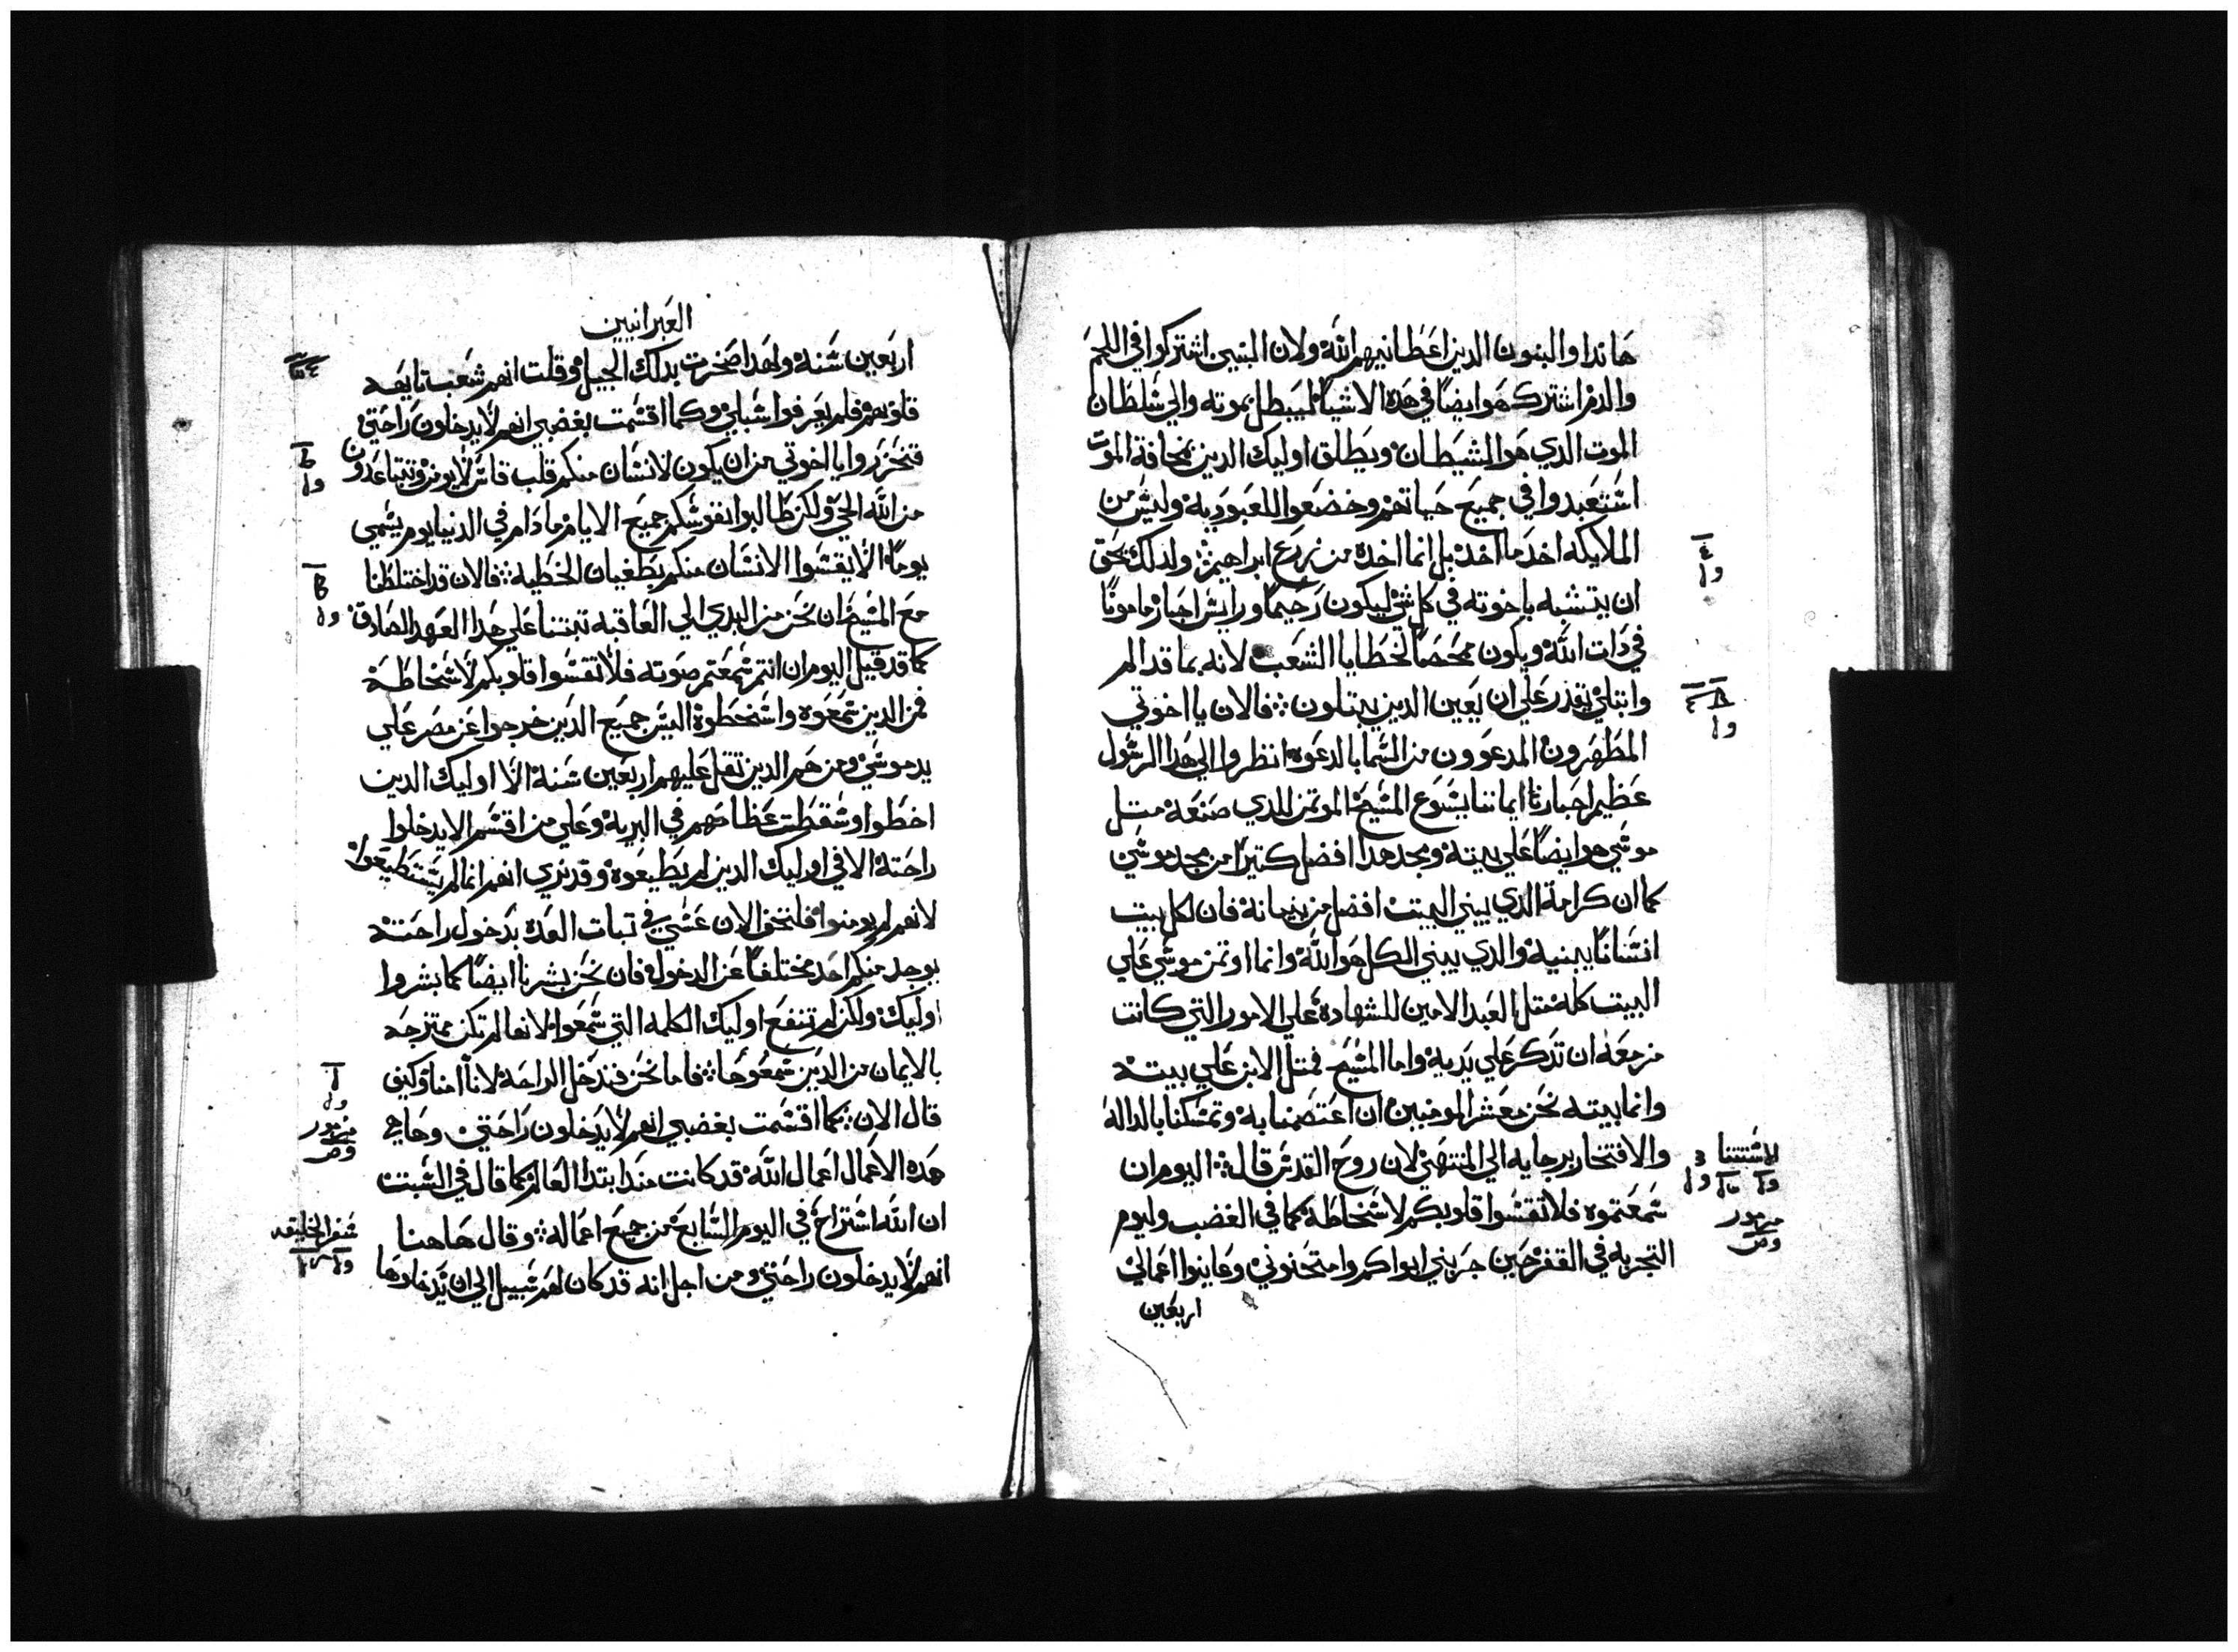 هاندا والبنون الدين اعطانيهم الله ولان البنين اشتركوا في اللحم
والدم اشترك هو ايضًا في هده الاشيا ليبطل بموته والي شلطان
الموت الدي هو الشيطان ويطلق اوليك الدين بمخافة الموت
اشتعبدوا في جميع حياتهم وخضعوا للعبوديه وليش من
الملايكه اخد ما اخد بل انما اخده من زرع ابراهيم ولدلك بحق
ان يتشبه باخوته في كل شي ليكون رحيمًا ورايش احبار مامونًا
في دات الله ويكون ممحصًا لخطايا الشعب لانه بما قد الم
وابتلي يقدر علي ان يعين الدين يبتلون فالان يا اخوتي
المطهرون المدعوون من الشما بالدعوه انظروا الي هدا الرشول
عظيم احبار ايماننا يشوع المشيح الموتمن للدي صنعه متل
موشي هو ايضًا علي بيته ومجد هدا افضل كتيرًا من مجد موشي
كما ان كرامة الدي يبني البيت افضل من بنيانه فان لكل بيت
انشانًا يبنيه والدي يبني الكل هو الله وانما اوتمن موشي علي
البيت كله متل العبد الامين للشهاده علي الامور التي كانت
مزمعه ان تدكر علي يديه واما المشيح فمتل الابن علي بيته
وانما بيته نحن معشر المومنين ان اعتصمنا به وتمشكنا بالداله
والافتخار برجايه الي المنتهي لان روح القدش قال اليوم ان
شمعتموه فلا تقشوا قلوبكم لاشخاطه كما في الغضب وليوم
التجربه في القفر حين جربني ابواكم وامتحنوني وعاينوا اعمالي
اربعين
العبرانيين
اربعين شنه ولهدا ضجرت بدلك الجيل وقلت انهم شعب تايهه
قلوبهم فلم يعرفوا شبلي وكما اقشمت بغضبي انهم لا يدخلون راحتي
فتحزروا يا اخوتي من ان يكون لانشان منكم قلب قاش لا يومن وتتباعدون
من الله الحي ولكن طالبوا نفوشكم جميع الايام ما دام في الدنيا يوم يشمي
يومًا الا يقشوا الانشان منكم بطغيان الخطيه فالان قد اختلطنا
مع المشيح ان نحن من البدي الي العاقبه تبتنا علي هدا العهد الصادق
كما قد قيل اليوم ان انتم شمعتم صوته فلا تقشوا قلوبكم لاشخاطه
فمن الدين شمعوه واشخطوه اليش جميع الدين خرجوا عن مصر علي
يد موشي ومن هم الدين تقل عليهم اربعين شنه الا اوليك الدين
اخطوا وشقطت عظامهم في البريه وعلي من اقشم الا يدخلوا
راحته الا في اوليك الدين لم يطيعوه وقد نري انهم انما لم يشتطيعوا
لانهم لم يومنوا فلنخف الان عشي في تبات العده بدخول راحته
يوجد منكم احد مختلفًا عن الدخول فان نحن بشرنا ايضًا كما بشروا
اوليك ولكن لم تنفع اوليك الكلمه التي شمعوا لانها لم تكن ممتزجه
بالايمان من الدين شمعوها فاما نحن فندخل الراحه لانا امنا وكيف
قال الان كما اقشمت بغضبي انهم لا يدخلون راحتي وها هي
هده الاعمال اعمال الله قد كانت مند ابتدا العالم كما قال في الشبت
ان الله اشتراح في اليوم الشابع من جميع اعماله وقال هاهنا
انهم لا يدخلون راحتي ومن اجل انه قد كان لهم شبيل الي ان يدخلوها
مزمور
شفر الخليقه
مزمور